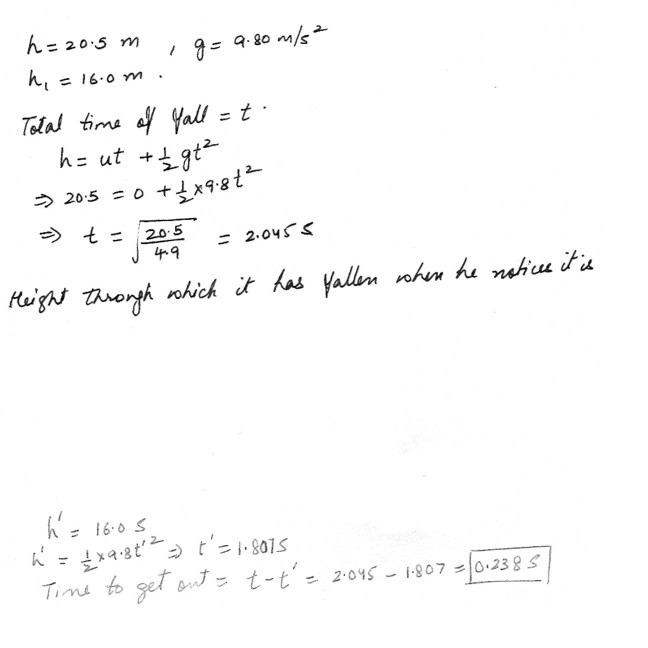 h = 20.5 m , g = 9.80 m/s²
h₁ = 16.0 m .
Total time of fall = t .
h = ut + ½ gt²
⇒ 20.5 = 0 + ½ × 9.8 t²
⇒ t = √(20.5/4.9) = 2.045 s
Height through which it has fallen when he notices it is
h' = 16.0 s
h' = ½ × 9.8 t'² ⇒ t' = 1.807 s
Time to get out = t - t' = 2.045 - 1.807 = 0.238 s